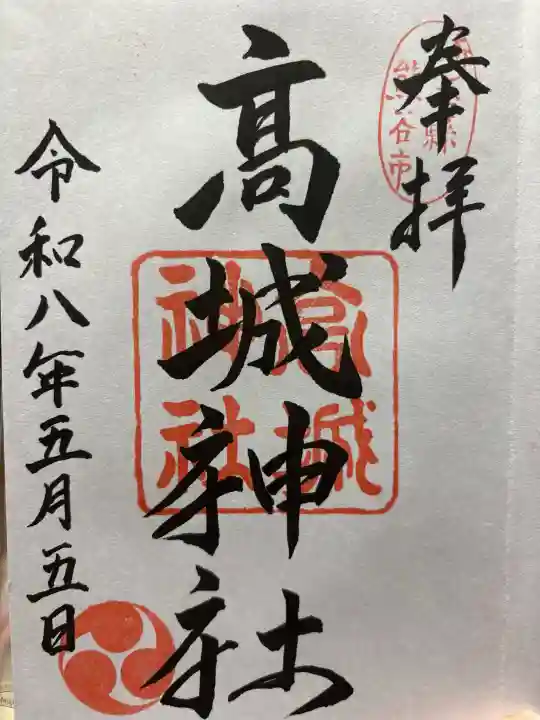 奉拝
熊谷市
髙城神社
高城
神社
令和八年五月五日